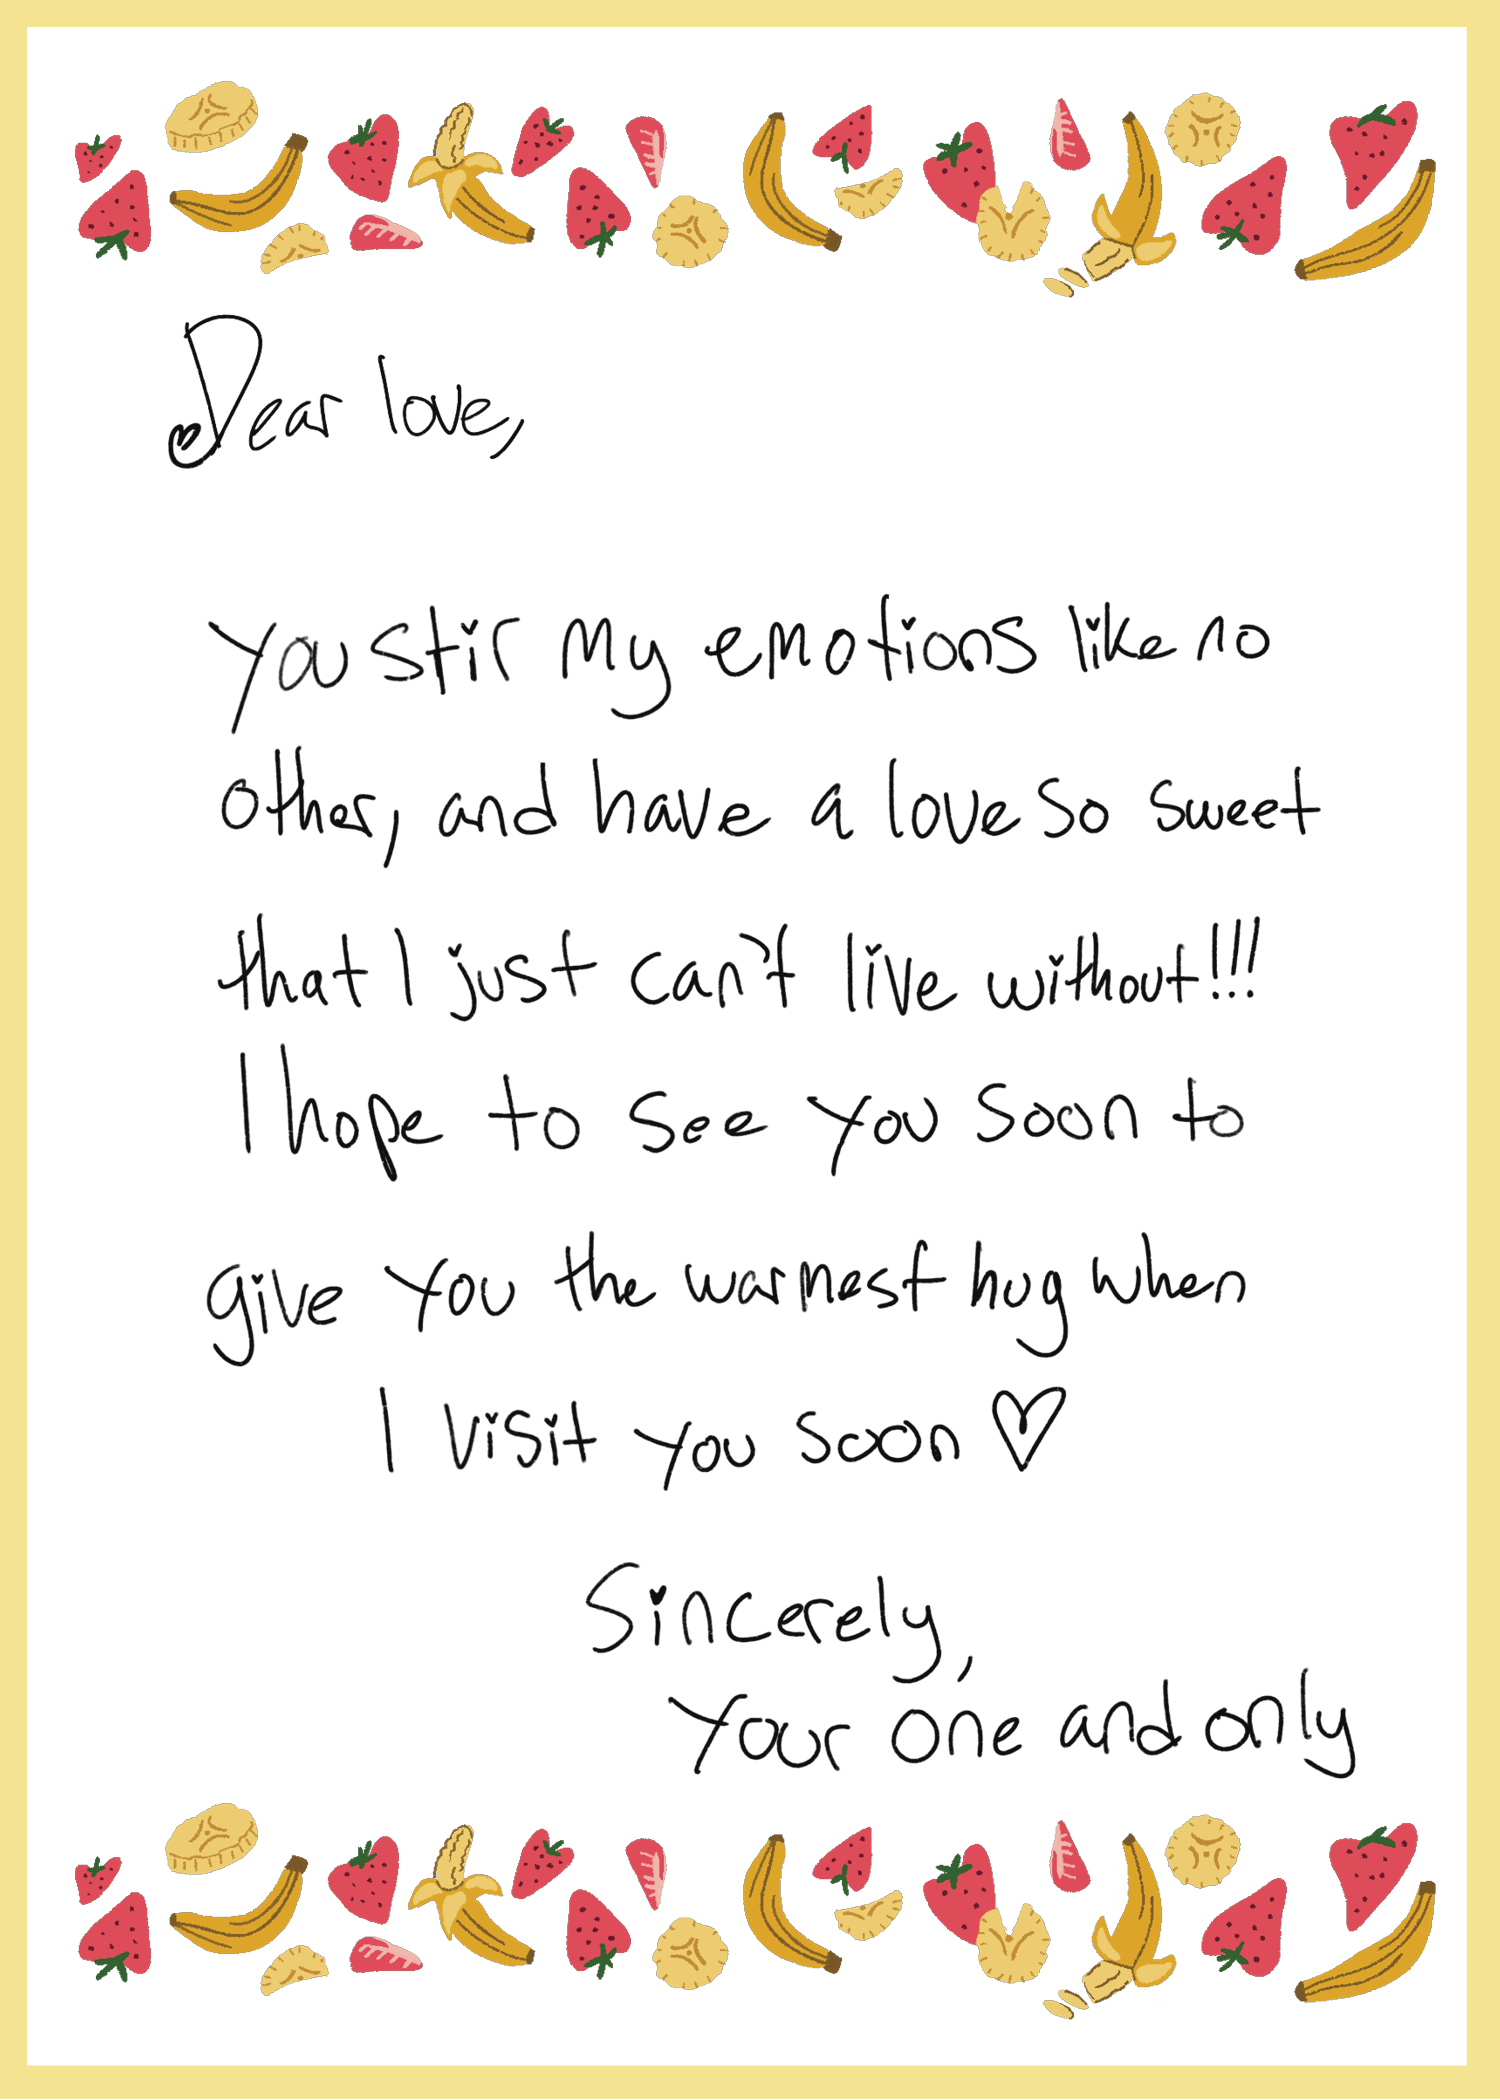 Dear love,
you stir my emotions like no
other, and have a love so sweet
that I just can't live without!!!
I hope to see you soon to
give you the warmest hug when
I visit you soon ♡
Sincerely,
Your one and only